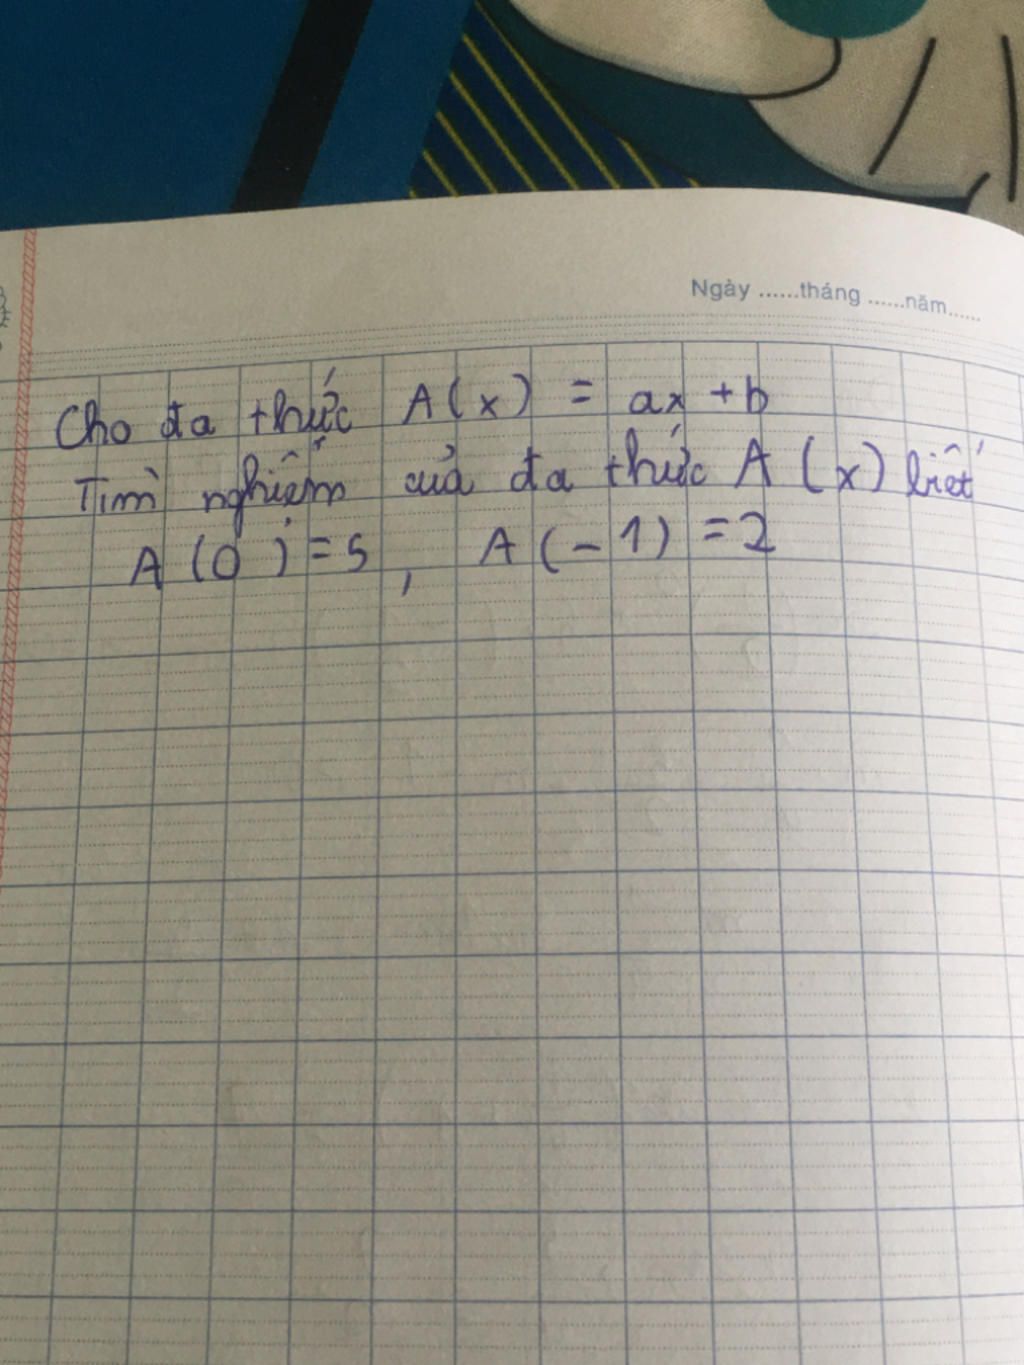 Ngày ......tháng ......năm......
Cho đa thức A(x) = ax + b
Tìm nghiệm của đa thức A(x) biết
A(0) = 5, A(-1) = 2